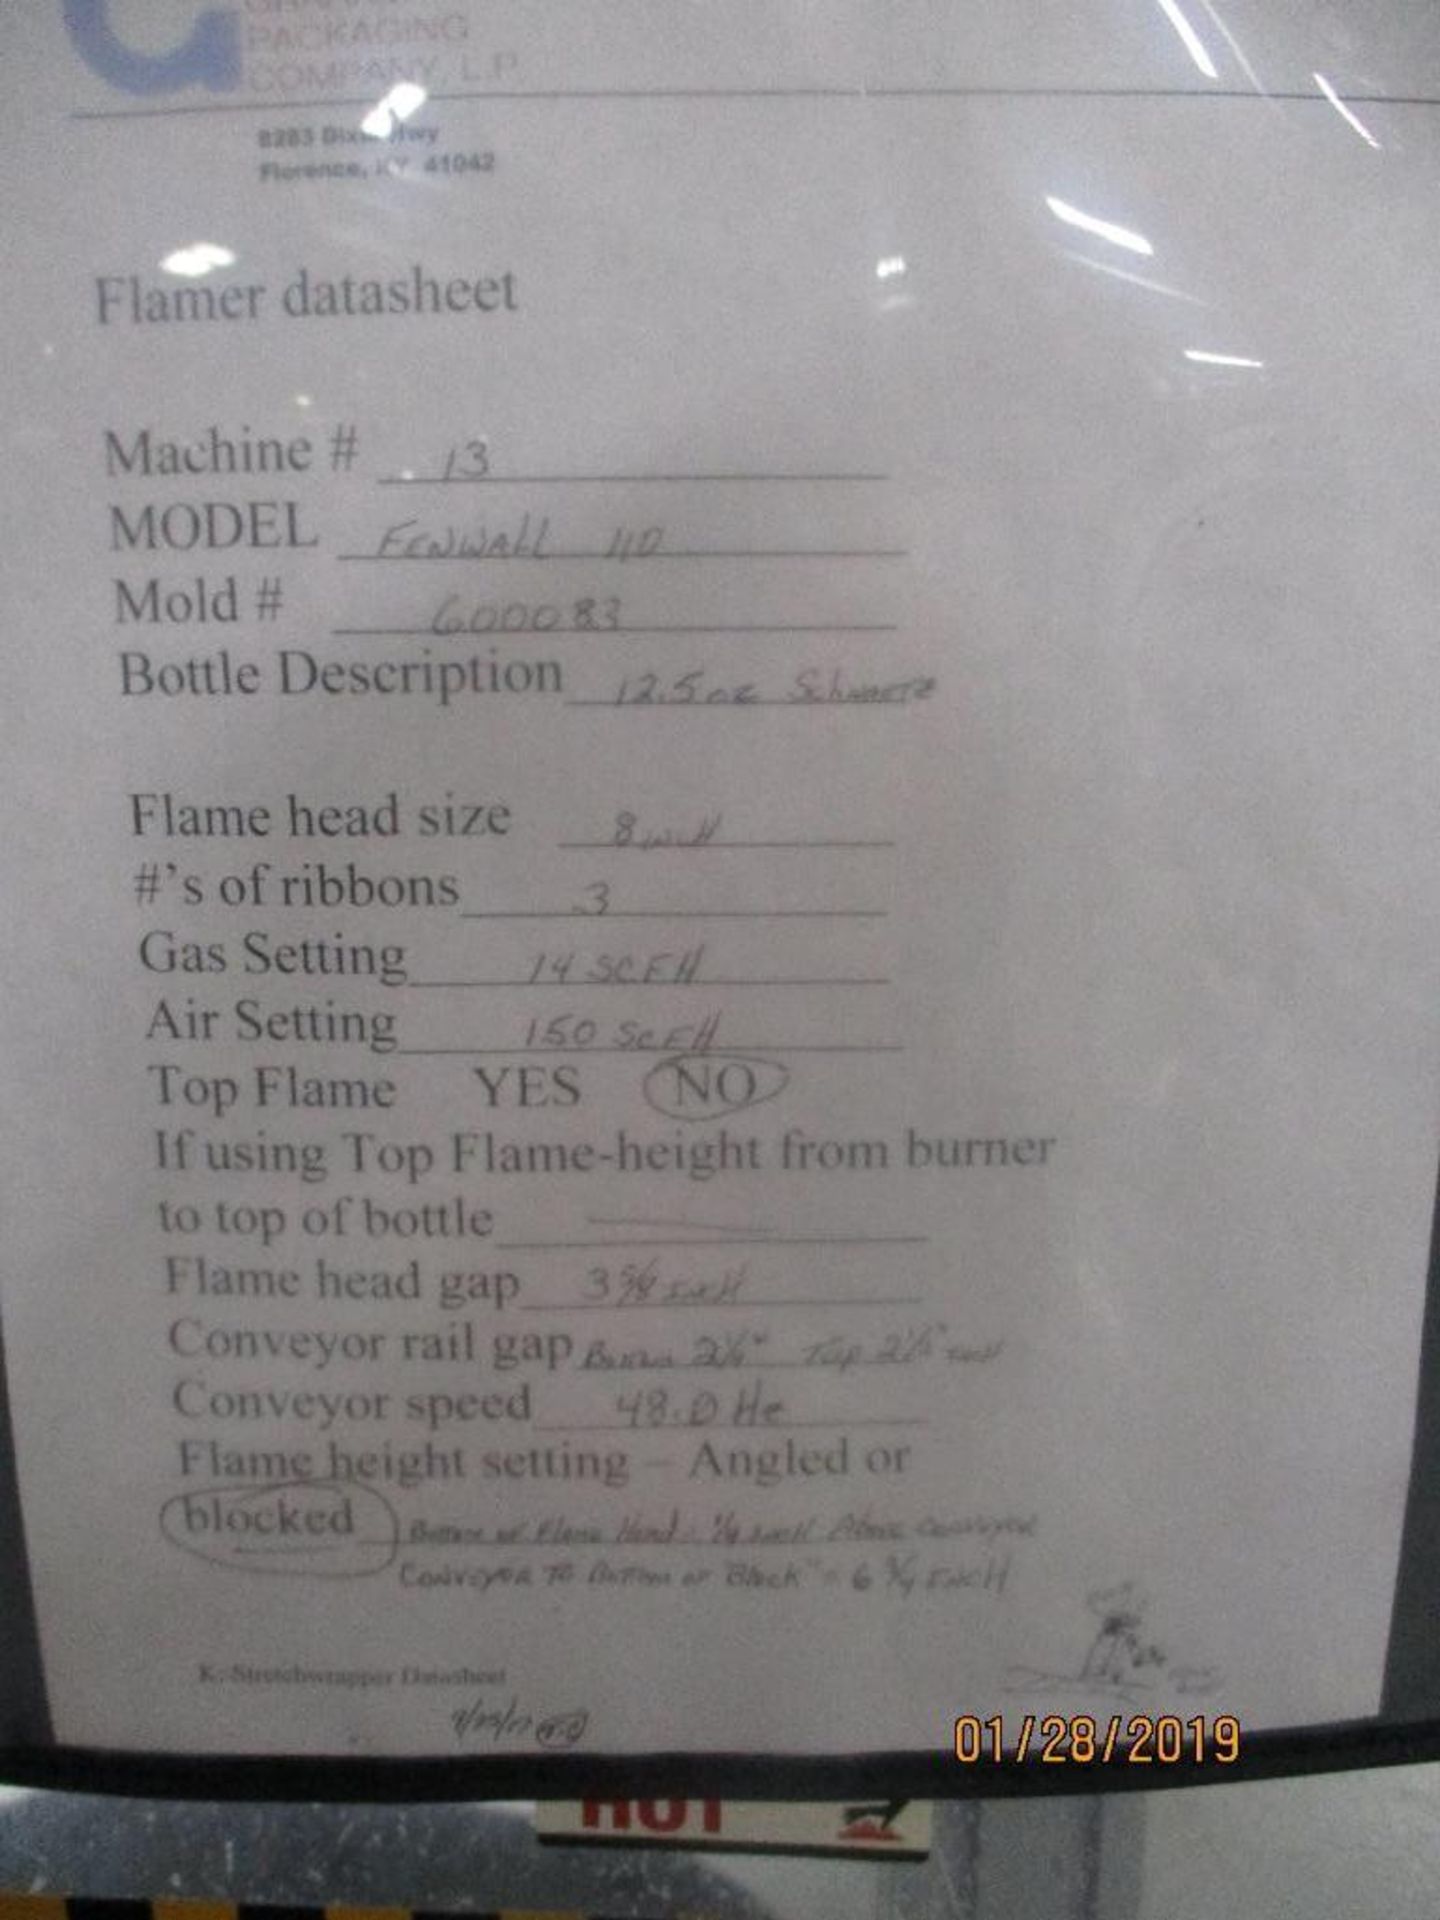 PACKAGING
COMPANY, L.P.
8283 Dixie Hwy
Florence, KY 41042
Flamer datasheet
Machine # 13
MODEL Fenwall 110
Mold # 600083
Bottle Description 12.5 oz Schwartz
Flame head size 8 inch
#'s of ribbons 3
Gas Setting 14 SCFH
Air Setting 150 SCFH
Top Flame YES NO
If using Top Flame-height from burner
to top of bottle
Flame head gap 3 5/8 INCH
Conveyor rail gap Bottom 2 1/4" Top
Conveyor speed 48.0 
Flame height setting – Angled or
blocked Bottom of Flame Head 1/4 inch Above Conveyor
Conveyor To Bottom of "Block" = 6 3/4 INCH
K: Stretchwrapper Datasheet
01/28/2019
HOT